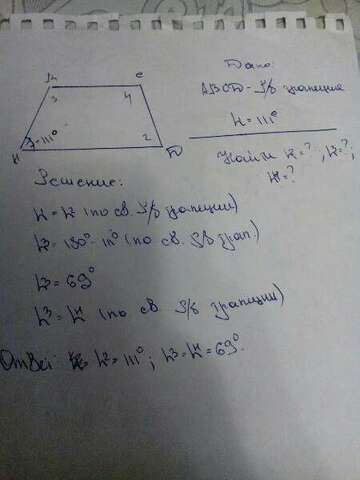 B C
3 4
1 = 111°
2
A D
Дано:
ABCD - р/б трапеция
∠1 = 111°
Найти ∠2=?, ∠3=?;
∠4=?
Решение:
∠1 = ∠2 (по св. р/б трапеции)
∠3 = 180° - 111° (по св. р/б трап.)
∠3 = 69°
∠3 = ∠4 (по св. р/б трапеции)
Ответ: ∠2 = 111°; ∠3 = ∠4 = 69°.